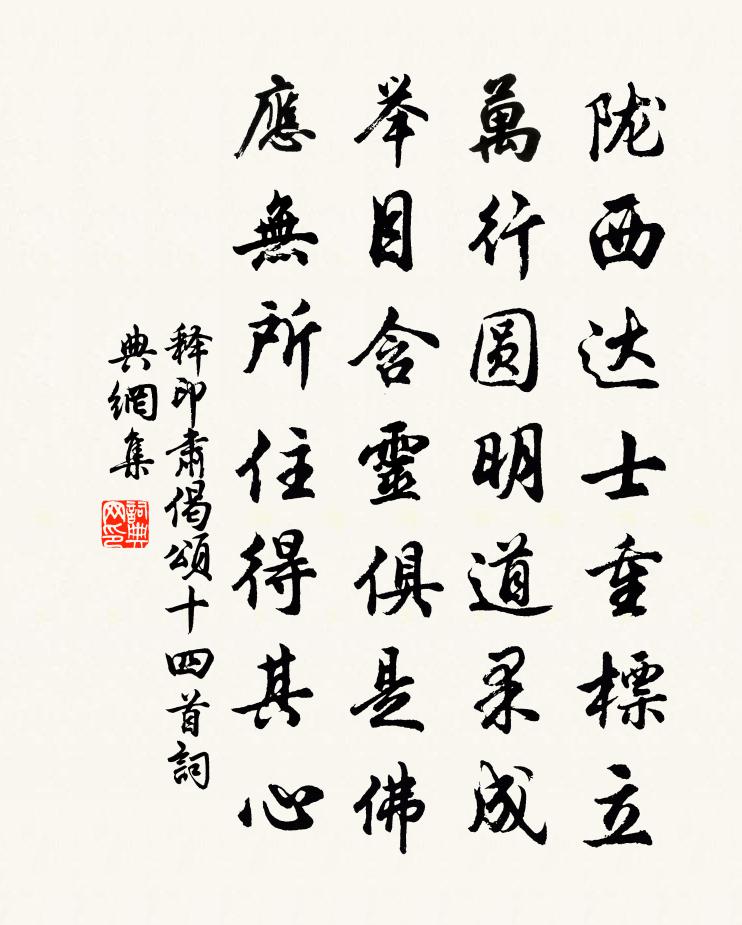 陇西达士重標立
萬行圆明道果成
举目含靈俱是佛
應無所住得其心
释印肃偈頌十四首詞
典網集
詞典网印